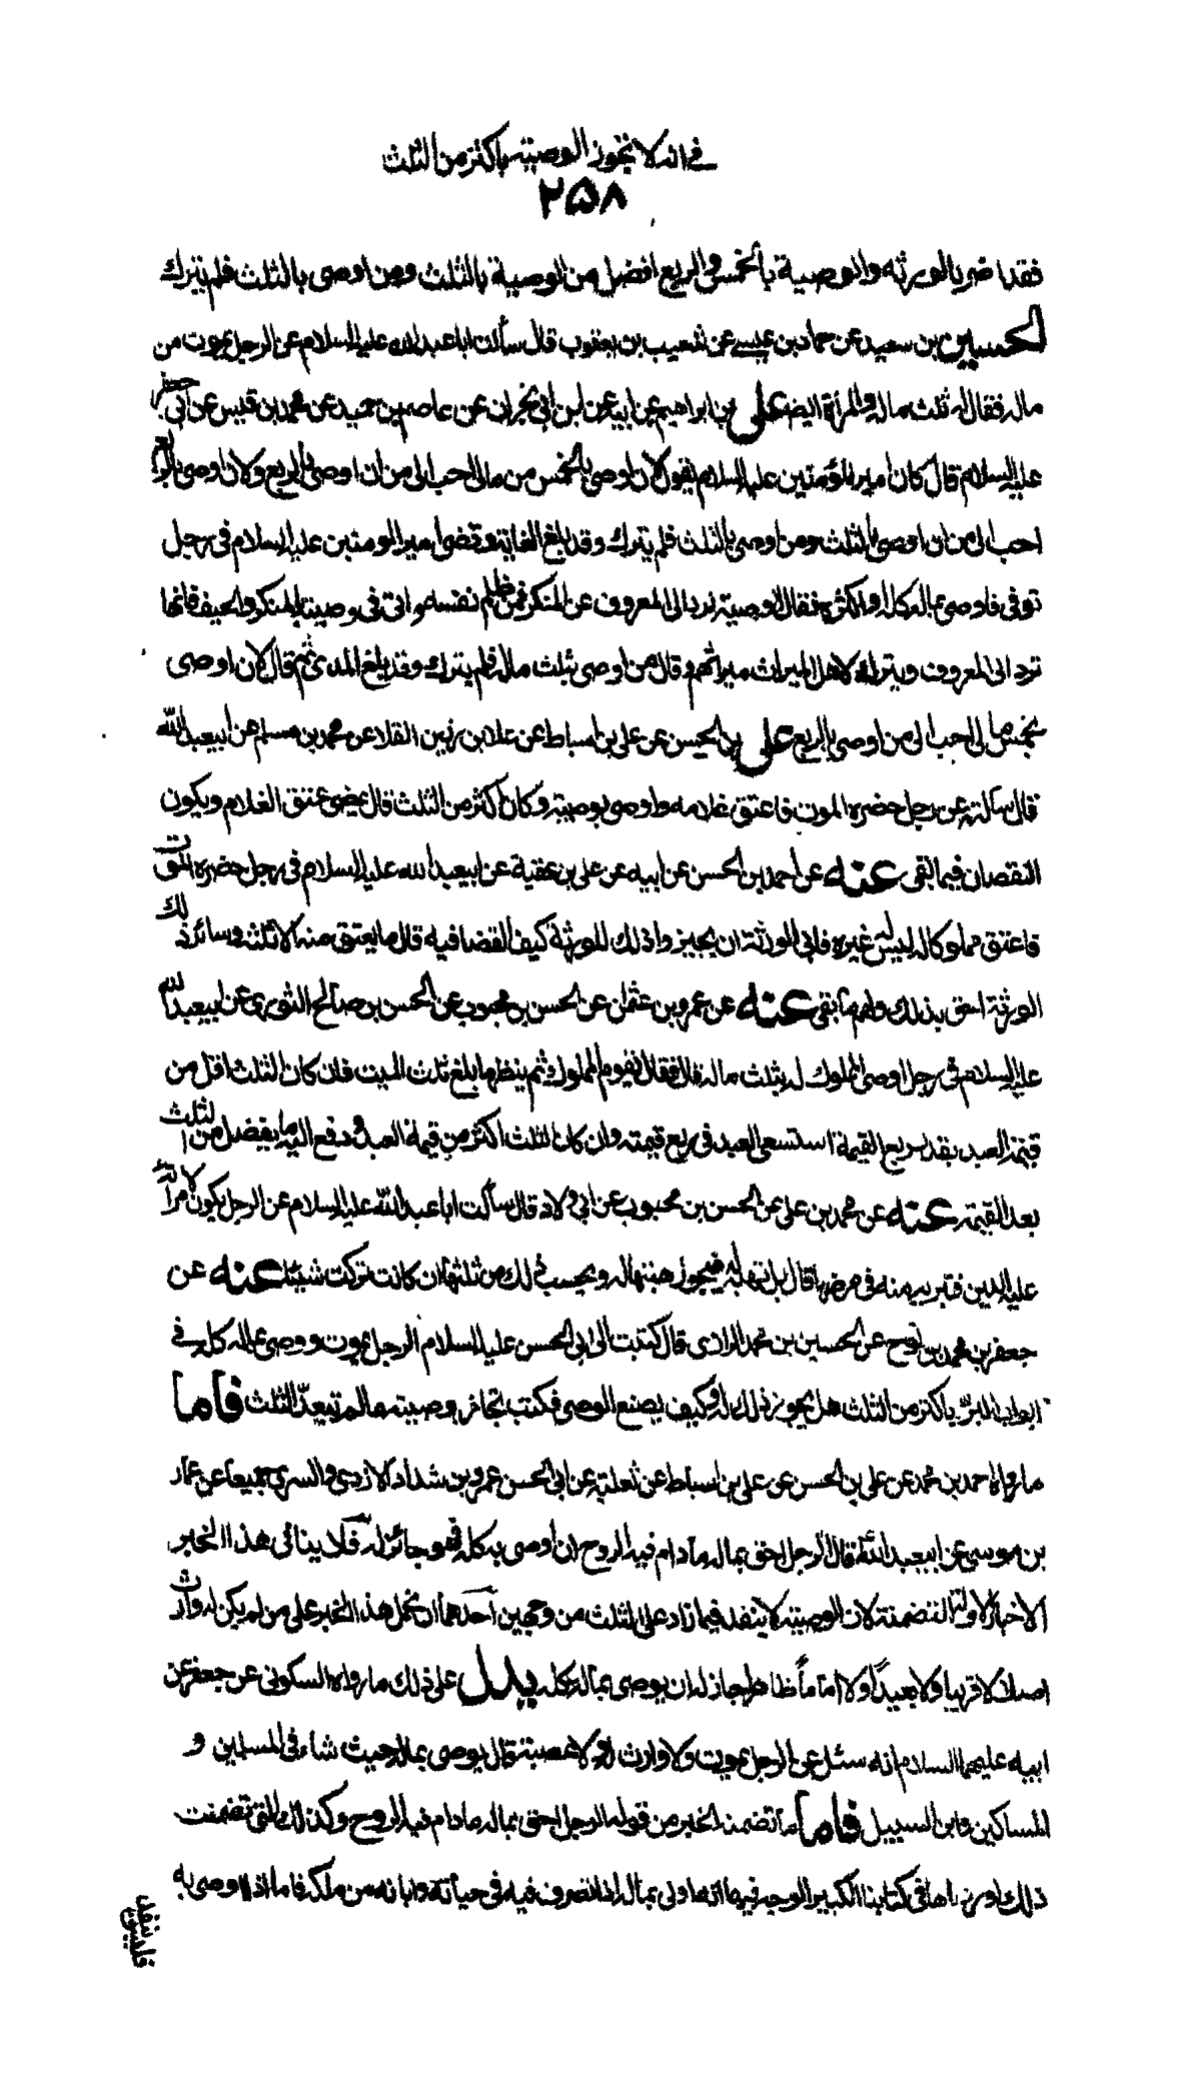 في انه لا تجوز الوصية باكثر من الثلث
۲۵۸
فقد اضر بالورثه والوصية بالخمس والربع افضل من الوصية بالثلث ومن اوصى بالثلث فلم يترك
الحسين بن سعيد عن حماد بن عيسى عن شعيب بن يعقوب قال سألت ابا عبد الله عليه السلام عن الرجل يموت من
ماله فقال له ثلث ماله وللمرأة ايضا علي بن ابراهيم عن ابيه عن ابن ابي نجران عن عاصم بن حميد عن محمد بن قيس عن ابي جعفر
عليه السلام قال كان امير المؤمنين عليه السلام يقول لان اوصى بالخمس من مالي احب الي من ان اوصى بالربع ولان اوصى بالربع
احب الي من ان اوصى بالثلث ومن اوصى بالثلث فلم يترك وقد بلغ الغاية وقضى امير المومنين عليه السلام في رجل
توفى فاوصى بماله كله او اكثره فقال الوصية ترد الى المعروف عن المنكر فمن ظلم نفسه واتى في وصيته المنكر والحيف فانها
ترد الى المعروف ويترك لاهل الميراث ميراثهم وقال من اوصى بثلث ماله فلم يترك وقد بلغ المدى ثم قال لان اوصى
بخمس مالي احب الي من اوصى بالربع علي بن الحسن عن علي بن اسباط عن علا بن رزين القلا عن محمد بن مسلم عن ابيعبد الله
قال سألته عن رجل حضره الموت فاعتق غلامه واوصى بوصيته وكان اكثر من الثلث قال يمضى عتق الغلام ويكون
النقصان فيما بقى عنه عن احمد بن الحسن عن ابيه عن علي بن عقبة عن ابيعبد الله عليه السلام في رجل حضره الموت
فاعتق مملوكا له ليس له غيره فابى الورثة ان يجيزوا ذلك للورثة كيف القضا فيه قال ما يعتق منه الا ثلثه وسائر ذلك
الورثة احق بذلك ولهم ما بقى عنه عن عمرو بن عثمان عن الحسن بن محبوب عن الحسن بن صالح الثوري عن ابيعبد الله
عليه السلام في رجل اوصى لمملوك له بثلث ماله قال فقال يقوم المملوك ثم ينظر ما بلغ ثلث الميت فان كان الثلث اقل من
قيمة العبد بقدر ربع القيمة استسعى العبد في ربع قيمته وان كان الثلث اكثر من قيمة العبد ودفع اليه ما يفضل من الثلث
بعد القيمة عنه عن محمد بن علي عن الحسن بن محبوب عن ابي ولاد قال سألت ابا عبد الله عليه السلام عن الرجل يكون لامرأته
عليه الدين فتبريه منه في مرضها قال بل تهبه له فيجوز هبتها له ويحسب ذلك من ثلثها ان كانت تركت شيئا عنه عن
جعفر بن محمد بن نوح عن الحسين بن محمد الرازي قال كتبت الى ابي الحسن عليه السلام الرجل يموت ووصى بماله كله في
ابواب البر باكثر من الثلث هل يجوز ذلك له وكيف يصنع الوصي فكتب تجاز وصيته ما لم تبعد الثلث فاما
ما رواه احمد بن محمد عن علي بن الحسن عن علي بن اسباط عن ثعلبة عن ابي الحسن عمرو بن شداد الازدي والسري جميعا عن عمار
بن موسى عن ابيعبد الله قال الرجل احق بماله ما دام فيه الروح ان اوصى به كله فهو جائز له فلا ينافي هذا الخبر
الاخبار الاولة المتضمنة لان الوصية لا ينفد فيما زاد على الثلث من وجهين احدهما ان نحمل هذا الخبر على من لم يكن له وارث
اصلا لا قريبا ولا بعيدا ولا اماما ظاهرا جاز له ان يوصى بماله كله يدل على ذلك ما رواه السكوني عن جعفر عن
ابيه عليهما السلام انه سئل عن الرجل يموت ولا وارث له ولا عصبة قال يوصى بماله حيث شاء في المسلمين و
المساكين وابن السبيل فاما ما تضمنه الخبر من قوله الرجل احق بماله ما دام فيه الروح وكذلك التي تضمنت
ذلك اوردناها في كتابنا الكبير الوجه فيها انه اولى بماله اذا تصرف فيه في حياته وابانه من ملكه فاما اذا اوصى به
فليس ينفذ